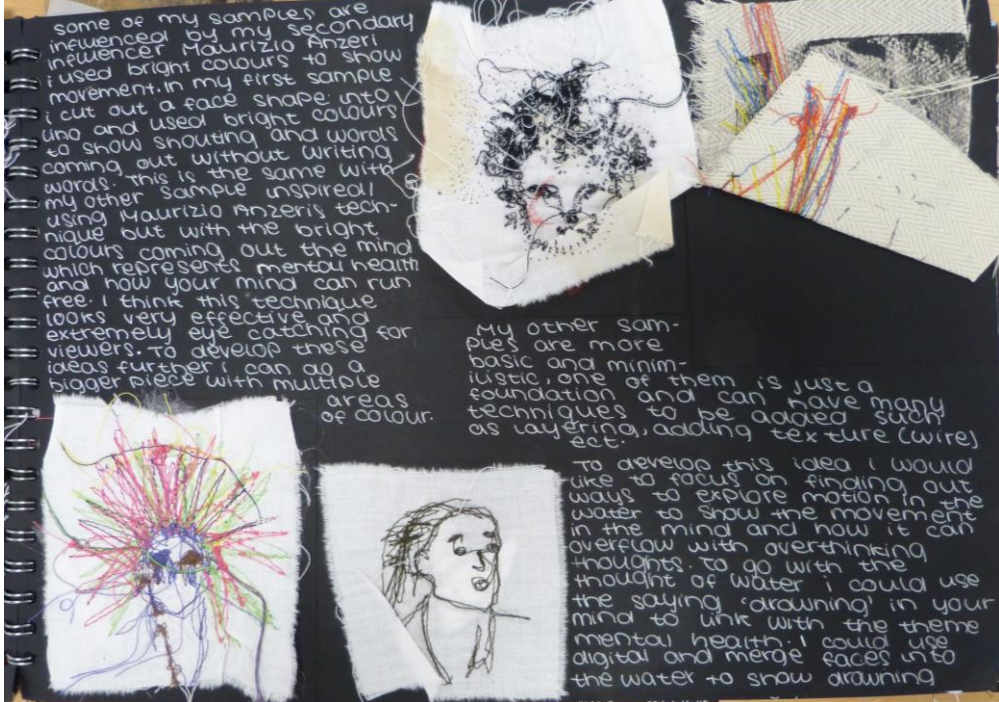 some of my samples are
influenced by my secondary
influencer Maurizio Anzeri
i used bright colours to show
movement. in my first sample
i cut out a face shape into
lino and used bright colours
to show shouting and words
coming out without writing
words. This is the same with
my other sample inspired/
using Maurizio Anzeris tech-
nique but with the bright
colours coming out the mind
which represents mental health
and how your mind can run
free. I think this technique
looks very effective and
extremely eye catching for
viewers. To develop these
ideas further i can do a
bigger piece with multiple
areas
of colour.
My other sam-
ples are more
basic and minim-
ilistic, one of them is just a
foundation and can have many
techniques to be added such
as layering, adding texture (wire)
ect.
To develop this idea i would
like to focus on finding out
ways to explore motion in the
water to show the movement
in the mind and how it can
overflow with overthinking
thoughts. To go with the
thought of water i could use
the saying 'drowning' in your
mind to link with the theme
mental health. I could use
digital and merge faces into
the water to show drowning